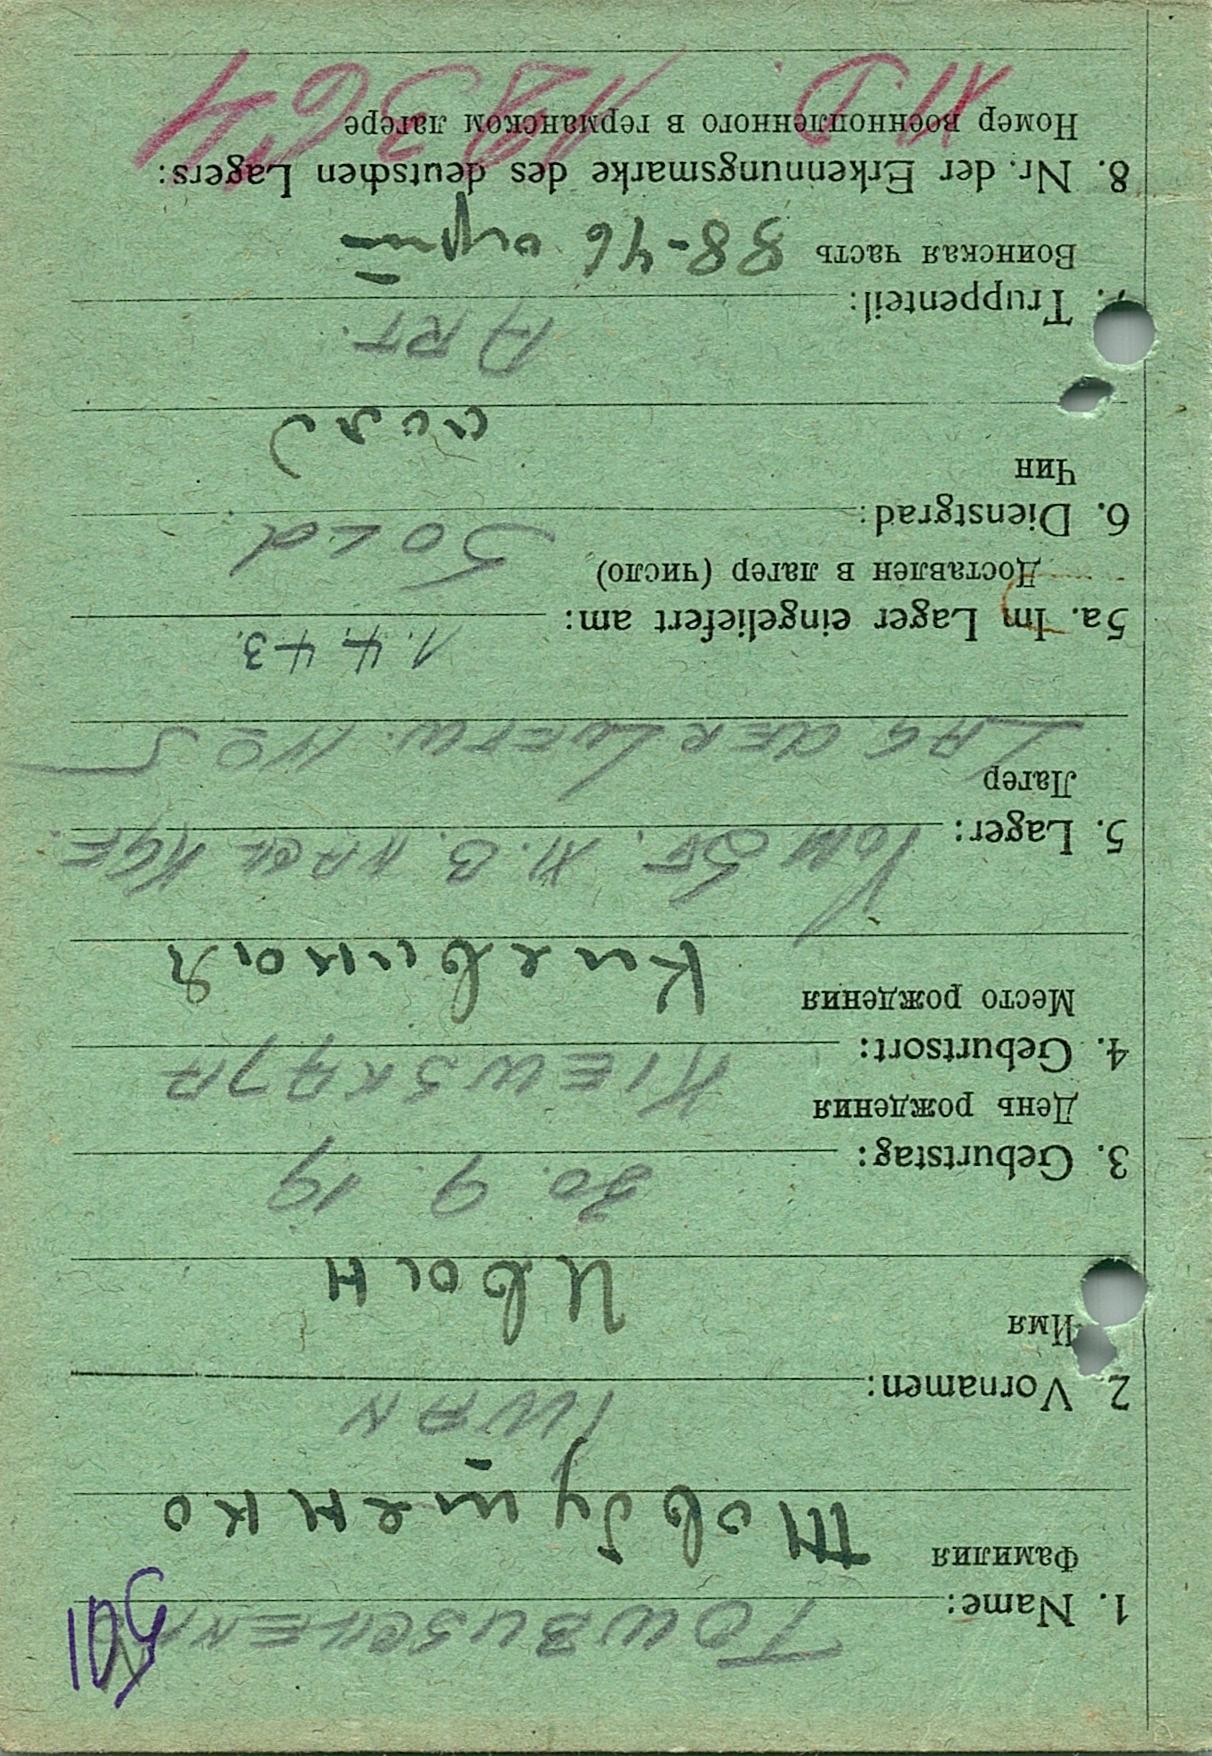 501
1. Name: TOWBUSCHENKO
Фамилия Товбушенко
2. Vornamen: IWAN
Имя Иван
3. Geburtstag: 30. 9. 19
День рождения
4. Geburtsort: KIEWSKAJA
Место рождения Киевская
5. Lager: VOM ST. XI. B NACH KGF.
Лагер LAG. DER LUFTW. NO 5
5a. Im Lager eingeliefert am: 1. 4. 43.
Доставлен в лагер (число)
6. Dienstgrad: SOLD
Чин солд
7. Truppenteil: ART.
Воинская часть 88-46
8. Nr. der Erkennungsmarke des deutschen Lagers:
Номер военнопленного в германском лагере
XI D.